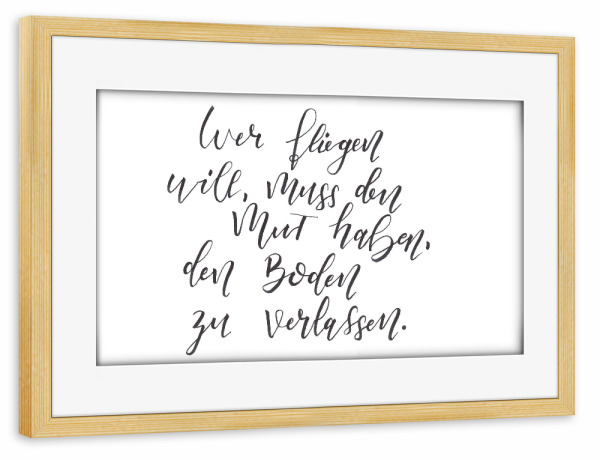 Wer fliegen
will, muss den
Mut haben,
den Boden
zu verlassen.